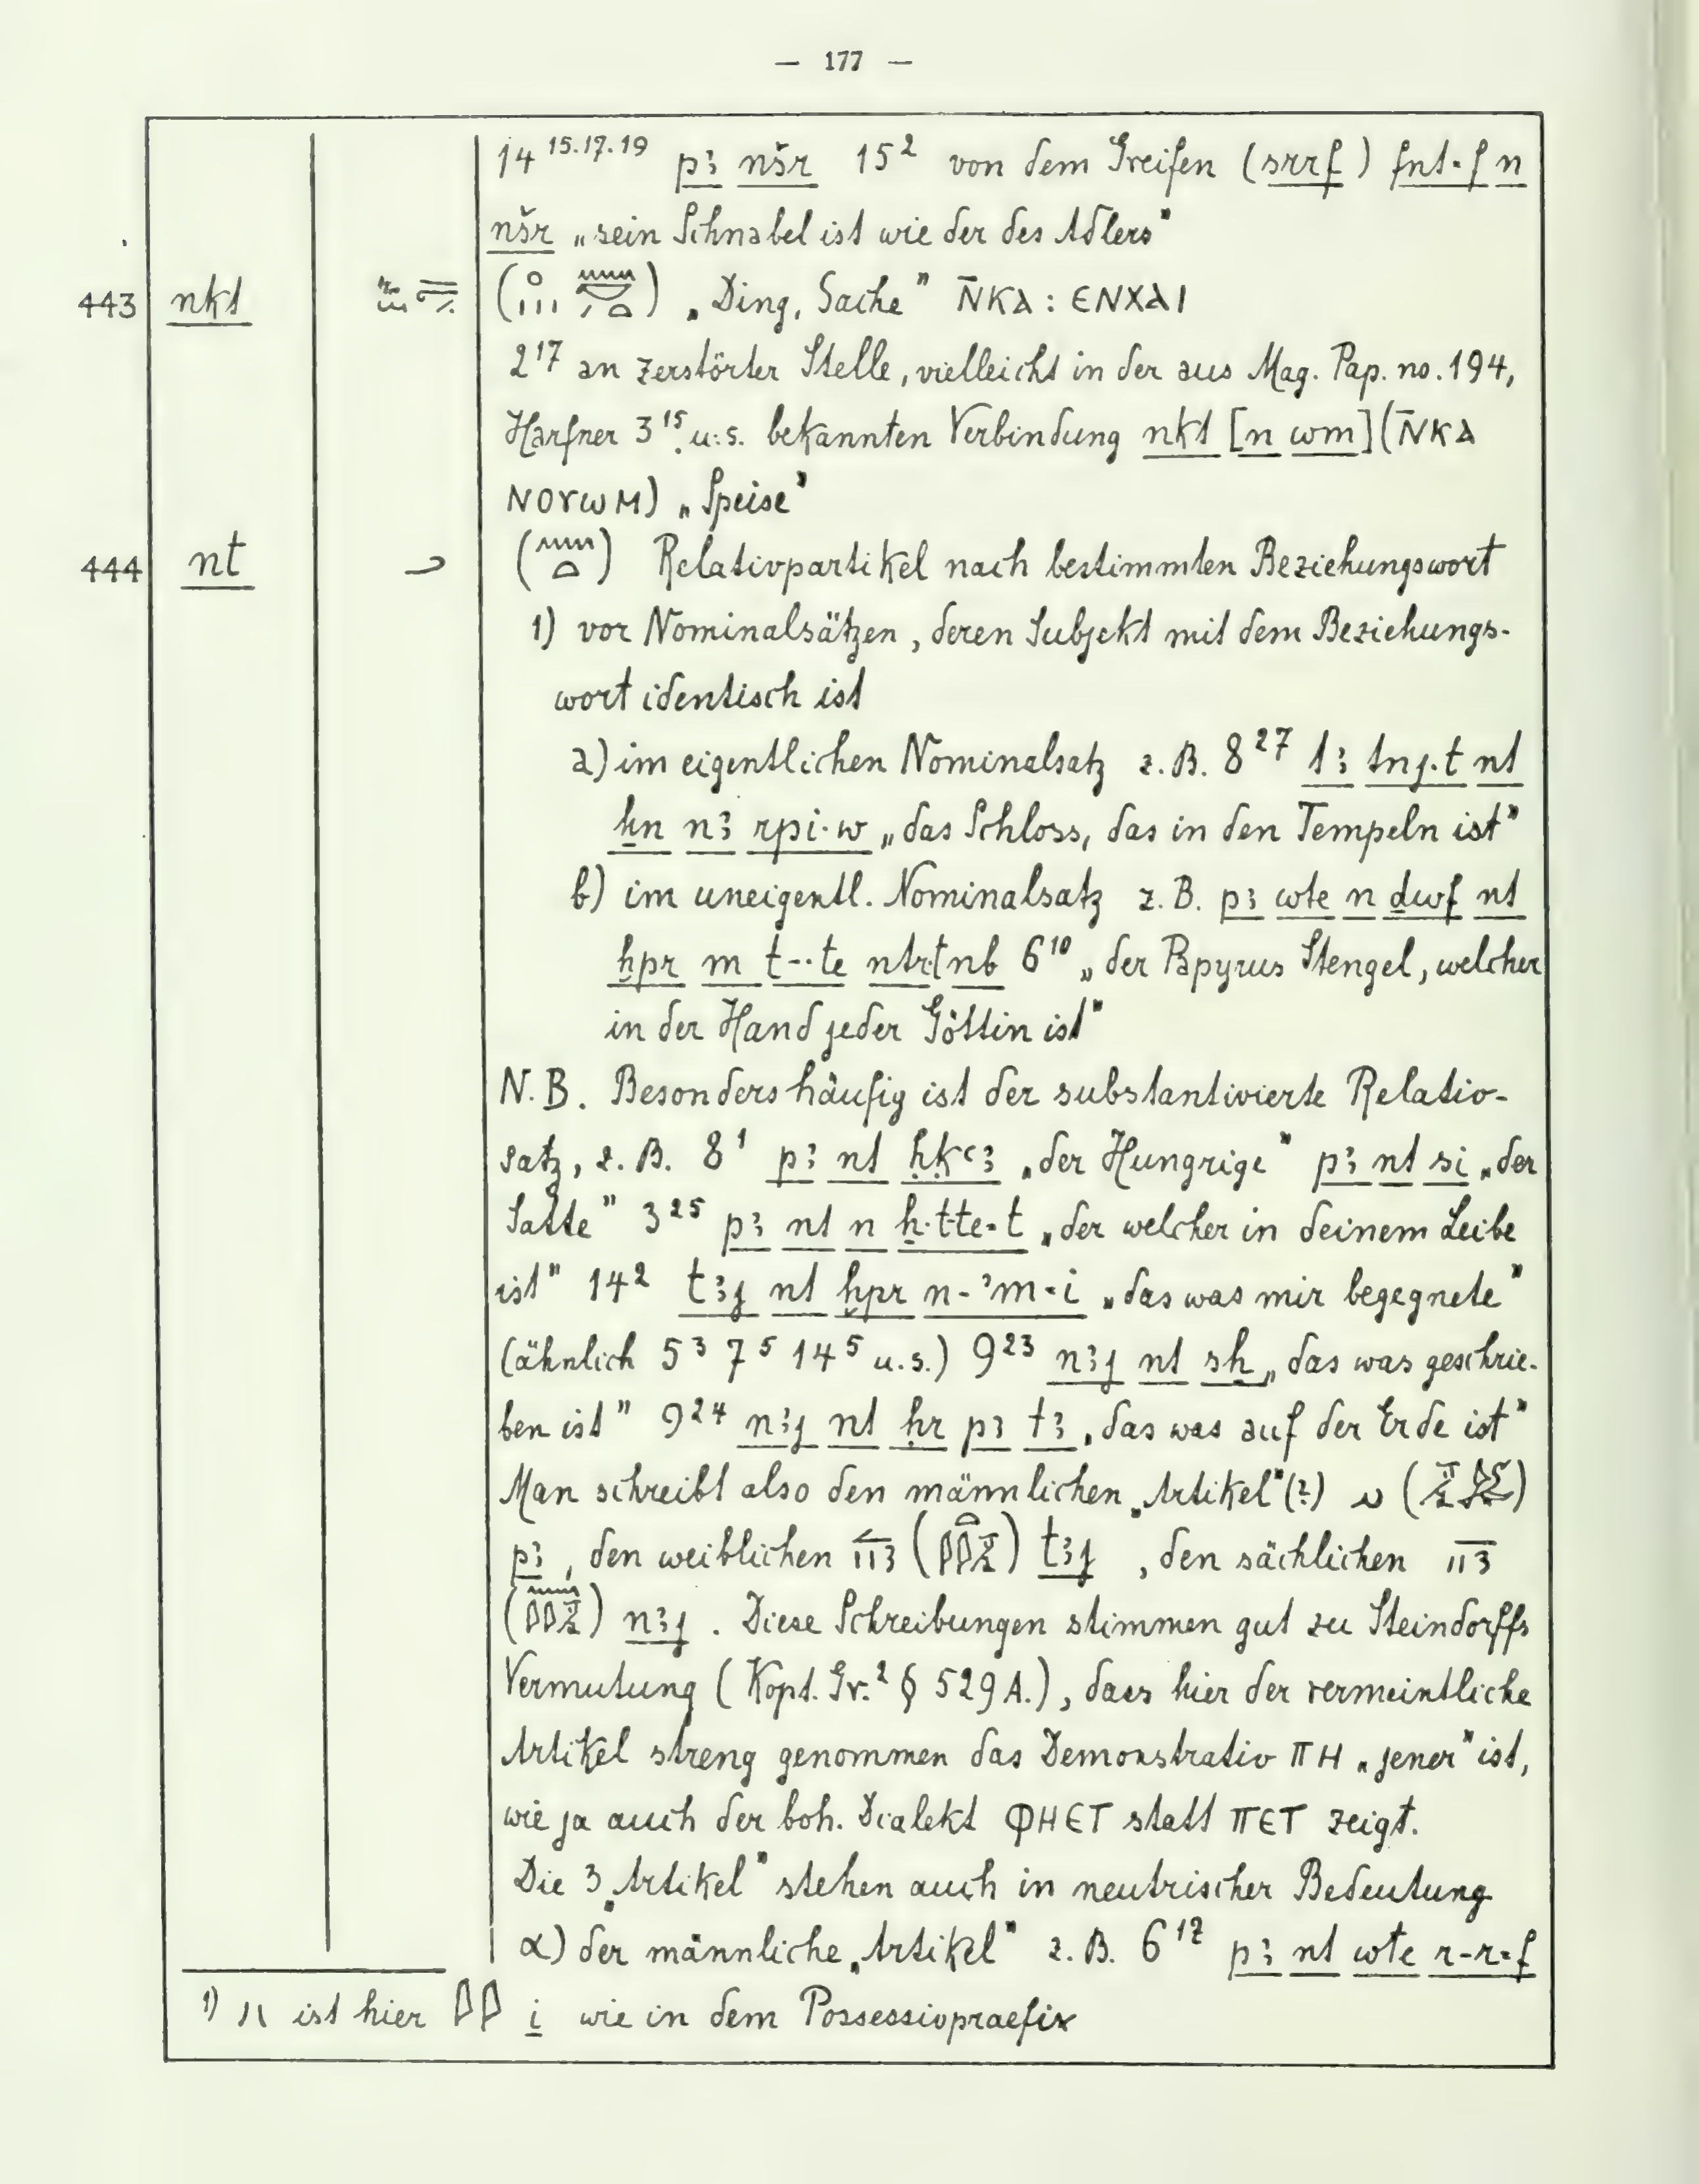 — 177 —
14 15.17.19 pꜣ nšr 15² von dem Greifen (srrf) fnt·f n
nšr „sein Schnabel ist wie der des Adlers"
443 nkt „Ding, Sache" N̄KA : ENXAI
2¹⁷ an zerstörter Stelle, vielleicht in der aus Mag. Pap. no. 194,
Harfner 3¹⁵ u.s. bekannten Verbindung nkt [n wm] (N̄KA
NOYωM) „Speise"
444 nt Relativpartikel nach bestimmten Beziehungswort
1) vor Nominalsätzen, deren Subjekt mit dem Beziehungs-
wort identisch ist
a) im eigentlichen Nominalsatz z.B. 8²⁷ tꜣ tnj·t nt
ẖn nꜣ rpi·w „das Schloss, das in den Tempeln ist"
b) im uneigentl. Nominalsatz z.B. pꜣ wte n ḏwf nt
ḫpr m t--te ntr·t nb 6¹⁰ „der Papyrus Stengel, welcher
in der Hand jeder Göttin ist"
N.B. Besonders häufig ist der substantivierte Relativ-
satz, z.B. 8¹ pꜣ nt ḥḳꜥꜣ „der Hungrige" pꜣ nt si „der
Satte" 3²⁵ pꜣ nt n ẖ·tte·t „der welcher in deinem Leibe
ist" 14² tꜣj nt ḫpr n-ꜣm·i „das was mir begegnete"
(ähnlich 5³ 7⁵ 14⁵ u.s.) 9²³ nꜣj nt sẖ „das was geschrie-
ben ist" 9²⁴ nꜣj nt ḥr pꜣ tꜣ „das was auf der Erde ist"
Man schreibt also den männlichen „Artikel"(?)
pꜣ, den weiblichen tꜣj, den sächlichen
nꜣj. Diese Schreibungen stimmen gut zu Steindorffs
Vermutung (Kopt. Gr.² § 529 A.), dass hier der vermeintliche
Artikel streng genommen das Demonstrativ ΠH „jener" ist,
wie ja auch der boh. Dialekt ΦHET statt ΠET zeigt.
Die 3 „Artikel" stehen auch in neutrischer Bedeutung
α) der männliche „Artikel" z.B. 6¹² pꜣ nt wte r-r·f
1) ist hier i wie in dem Possessivpraefix